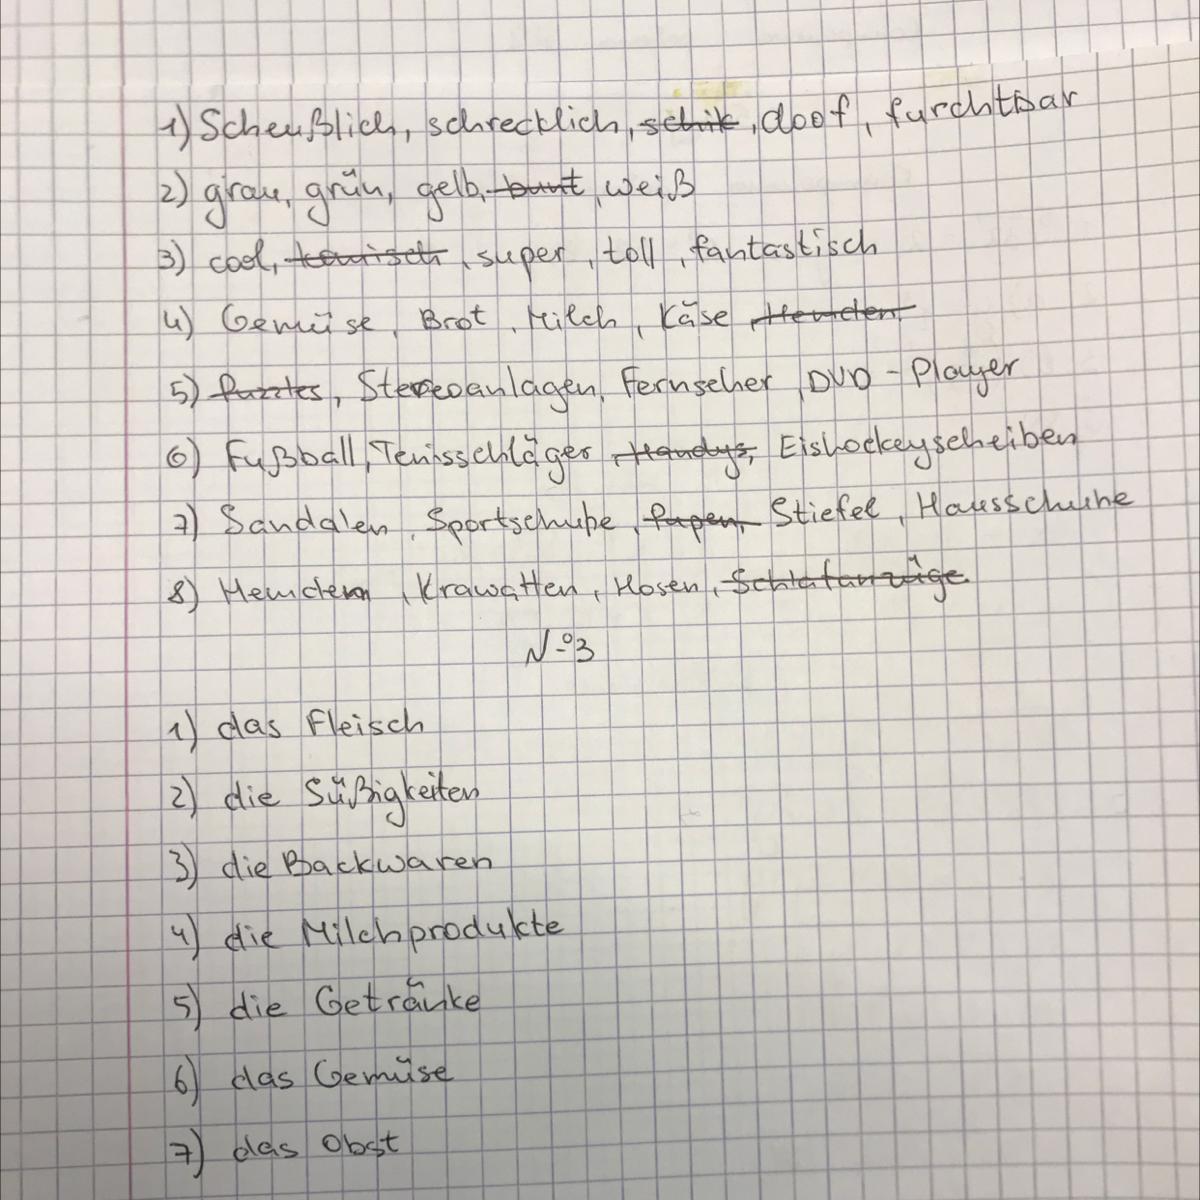 1) Scheußlich, schrecklich, schik, doof, furchtbar
2) grau, grün, gelb, bunt, weiß
3) cool, komisch, super, toll, fantastisch
4) Gemüse, Brot, Milch, Käse, Hemden
5) Puzzles, Stereoanlagen, Fernseher, DVD-Player
6) Fußball, Tenisschläger, Handys, Eishockeyscheiben
7) Sandalen, Sportschuhe, Pupen, Stiefel, Hausschuhe
8) Hemden, Krawatten, Hosen, Schlafanzüge
№3
1) das Fleisch
2) die Süßigkeiten
3) die Backwaren
4) die Milchprodukte
5) die Getränke
6) das Gemüse
7) das Obst